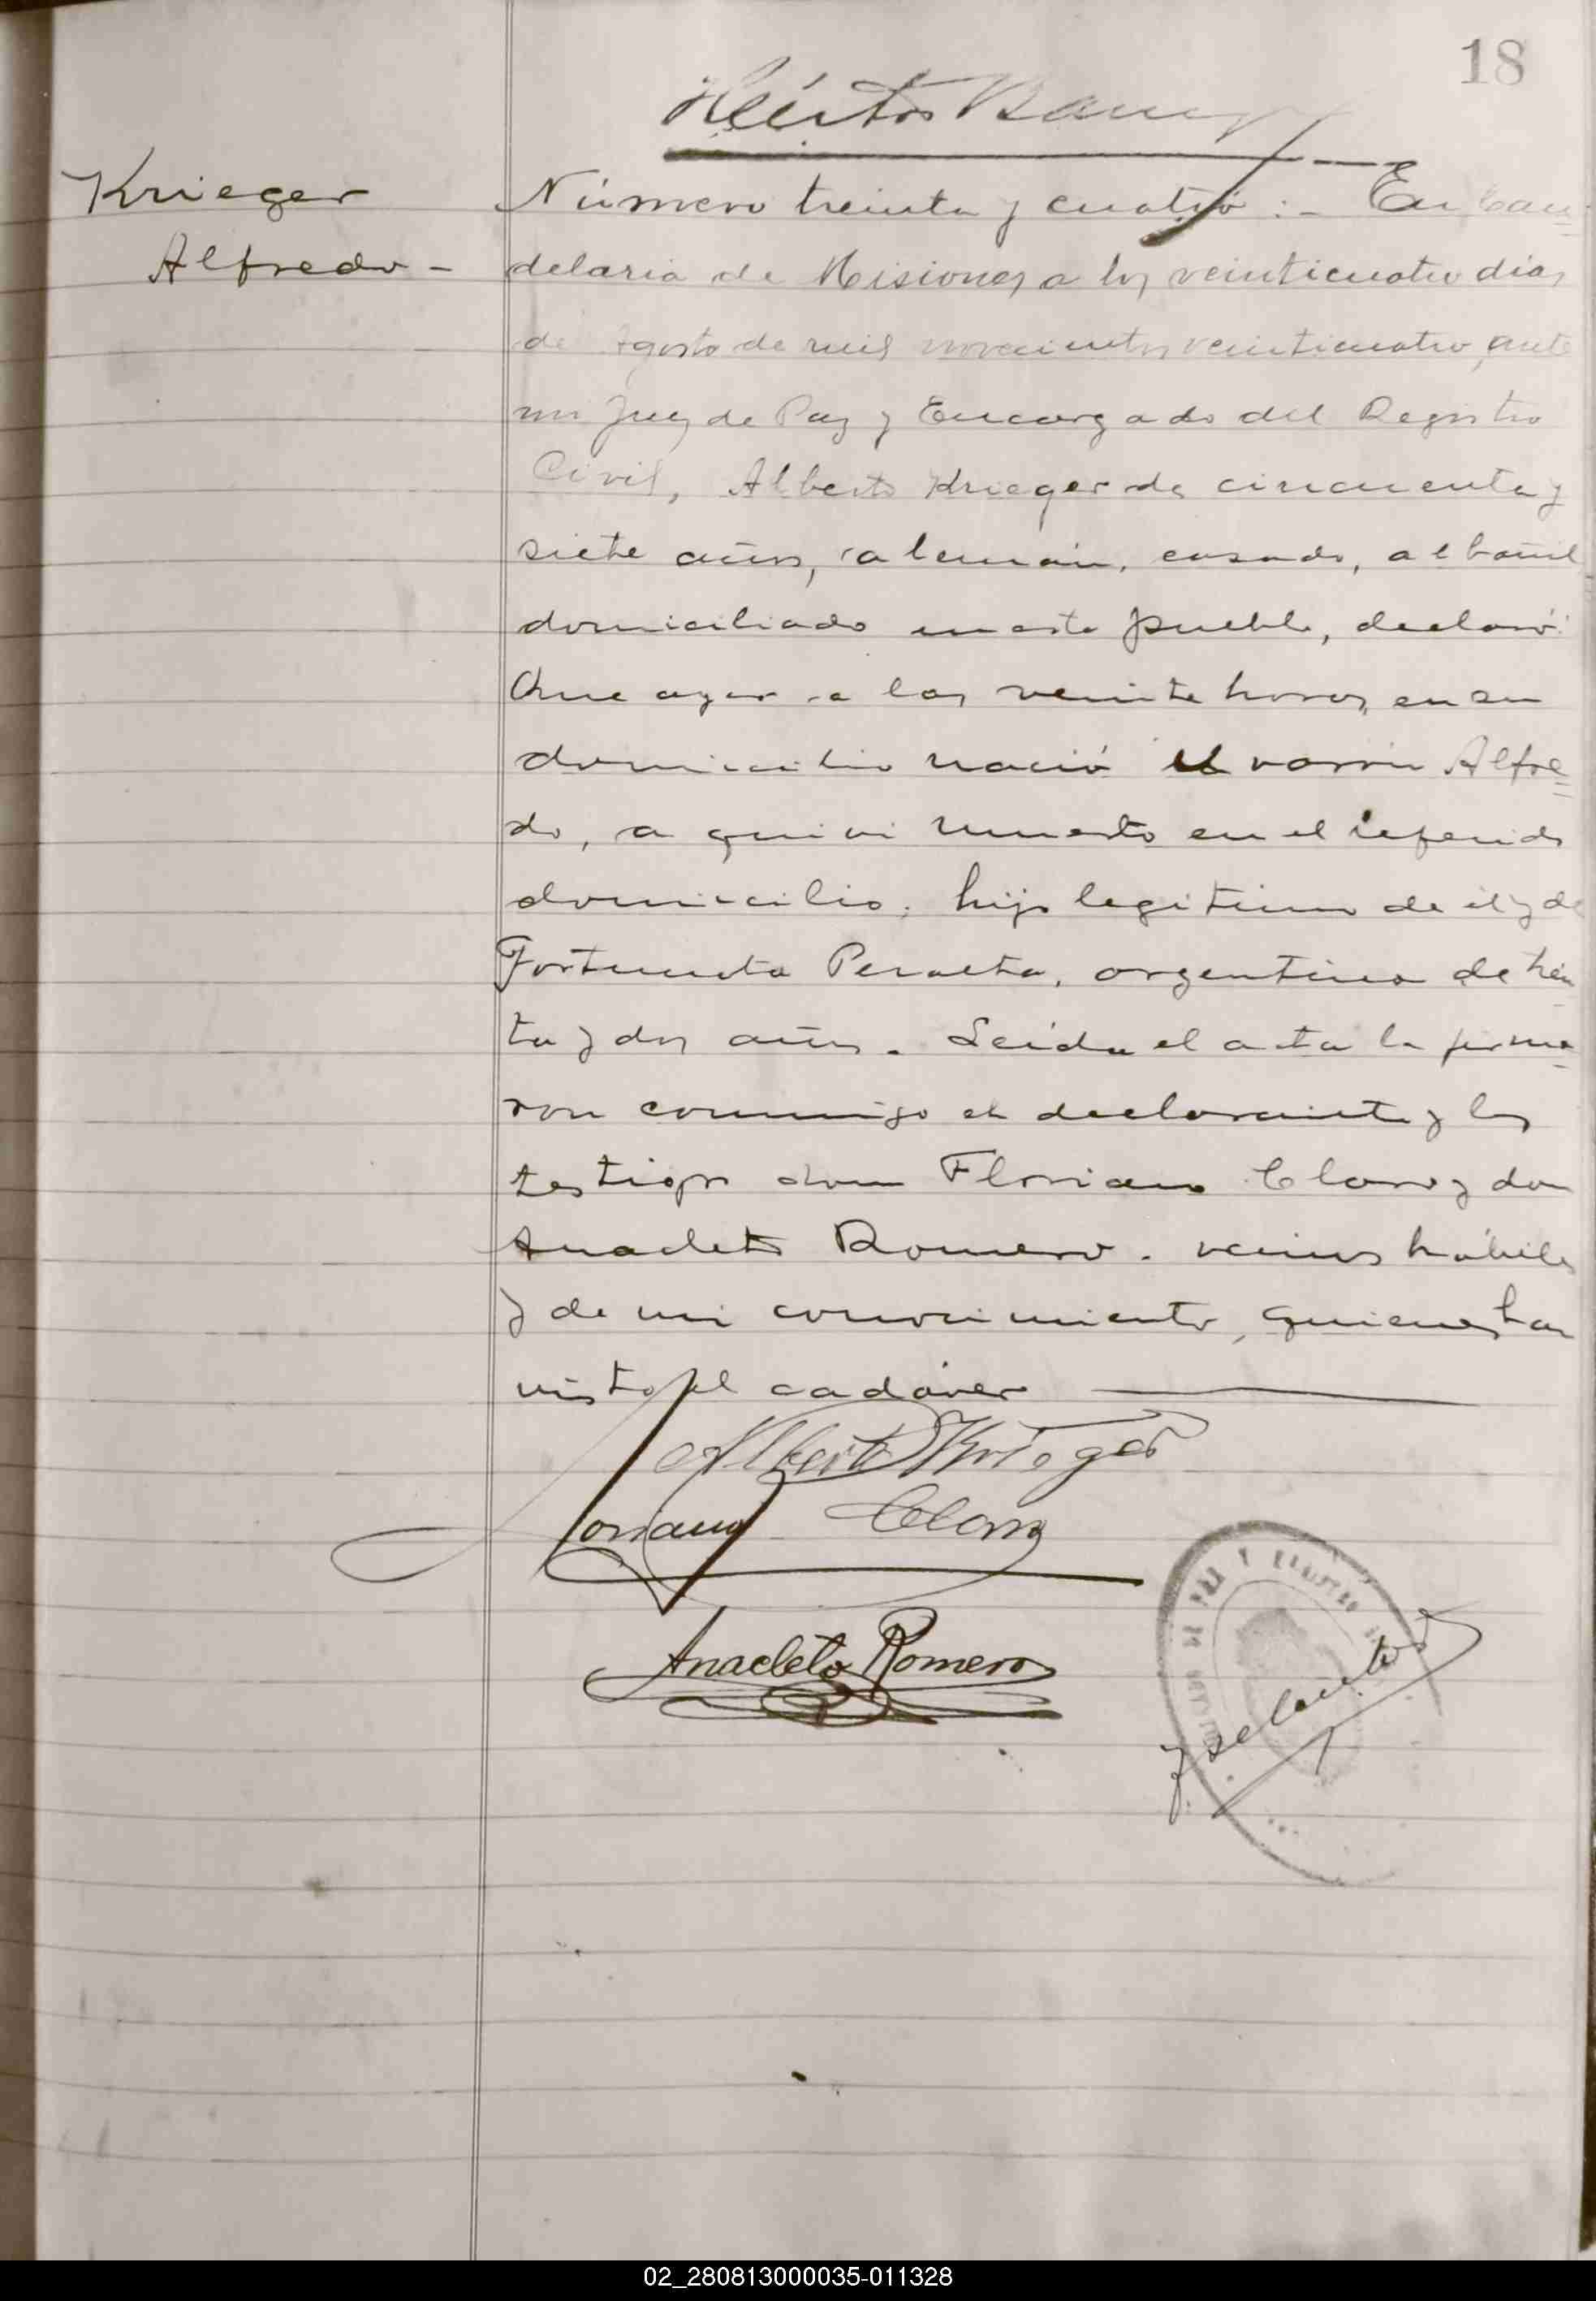 18
Héctor
Krieger
Alfredo -
Número treinta y cuatro : - En Can=
delaria de Misiones a los veinticuatro dias
de Agosto de mil novecientos veinticuatro, ante
mi Juez de Paz y Encargado del Registro
Civil, Alberto Krieger de cincuenta y
siete años, aleman, casado, albañil
domiciliado en este pueblo, declaró:
Que ayer a las veinte horas, en su
domicilio nació el varón Alfre=
do, a quien vi muerto en el referido
domicilio; hijo legitimo de él y de
Fortunata Peralta, argentina de trein
ta y dos años. Leida el acta la firma-
ron conmigo el declarante y los
testigos don Floriano Claro y don
Anacleto Romero. vecinos hábiles
y de mi conocimiento, quienes han
visto el cadáver
Alberto Krieger
Floriano Claro
Anacleto Romero
DE PAZ Y REGISTRO
02_280813000035-011328